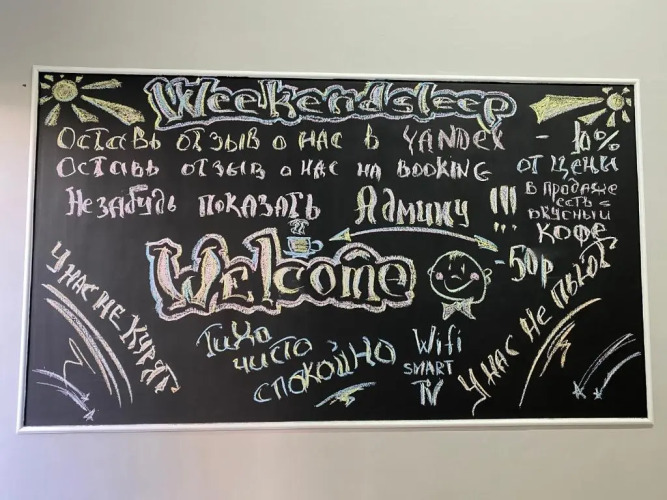 Weekendsleep
Оставь отзыв о нас в YANDEX - 10%
Оставь отзыв о нас на BOOKING от цены
Незабудь показать Админу !!!
В продаже
есть
вкусный
кофе
- 50р
Welcome
У нас не курят
Тихо
чисто
спокойно
Wifi
SMART
TV
У нас не пьют